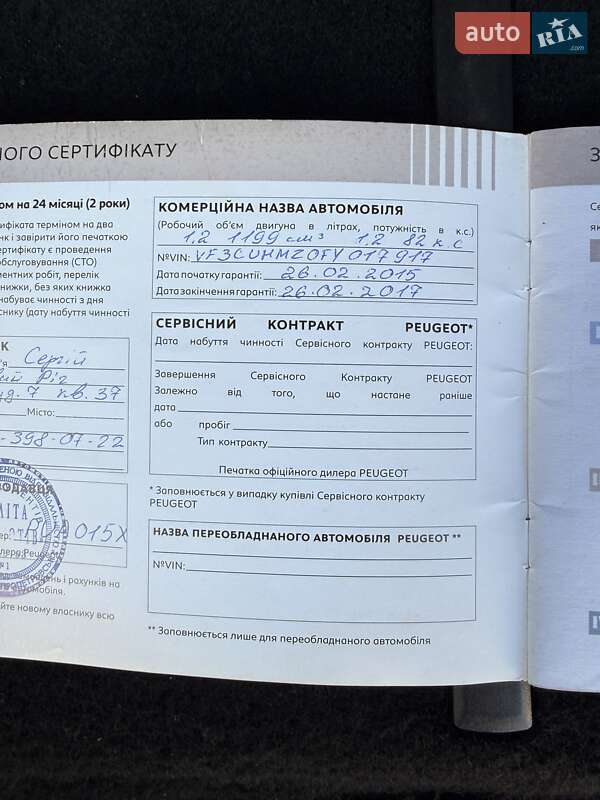 auto RIA .com
НОГО СЕРТИФІКАТУ
ом на 24 місяці (2 роки)
ифіката терміном на два
нк і завірити його печаткою
ертифікату є проведення
обслуговування (СТО)
ментних робіт, перелік
нижки, без яких книжка
набуває чинності з дня
снику (дату набуття чинності
К
Сергій
Ріг
7 кв. 37
Місто:
-398-07-22
ОДАВЦЯ
015X
Peugeot
№1
день і рахунків на
омобіля.
йте новому власнику всю
КОМЕРЦІЙНА НАЗВА АВТОМОБІЛЯ
(Робочий об'єм двигуна в літрах, потужність в к.с.)
1,2 1199 см³ 1,2 82 к.с
№VIN: VF3CUHMZ0FY017917
Дата початку гарантії: 26.02.2015
Дата закінчення гарантії: 26.02.2017
СЕРВІСНИЙ КОНТРАКТ PEUGEOT*
Дата набуття чинності Сервісного контракту PEUGEOT:
Завершення Сервісного Контракту PEUGEOT
Залежно від того, що настане раніше
дата
або пробіг
Тип контракту
Печатка офіційного дилера PEUGEOT
* Заповнюється у випадку купівлі Сервісного контракту
PEUGEOT
НАЗВА ПЕРЕОБЛАДНАНОГО АВТОМОБІЛЯ PEUGEOT **
№VIN:
** Заповнюється лише для переобладнаного автомобіля
З
Се
як